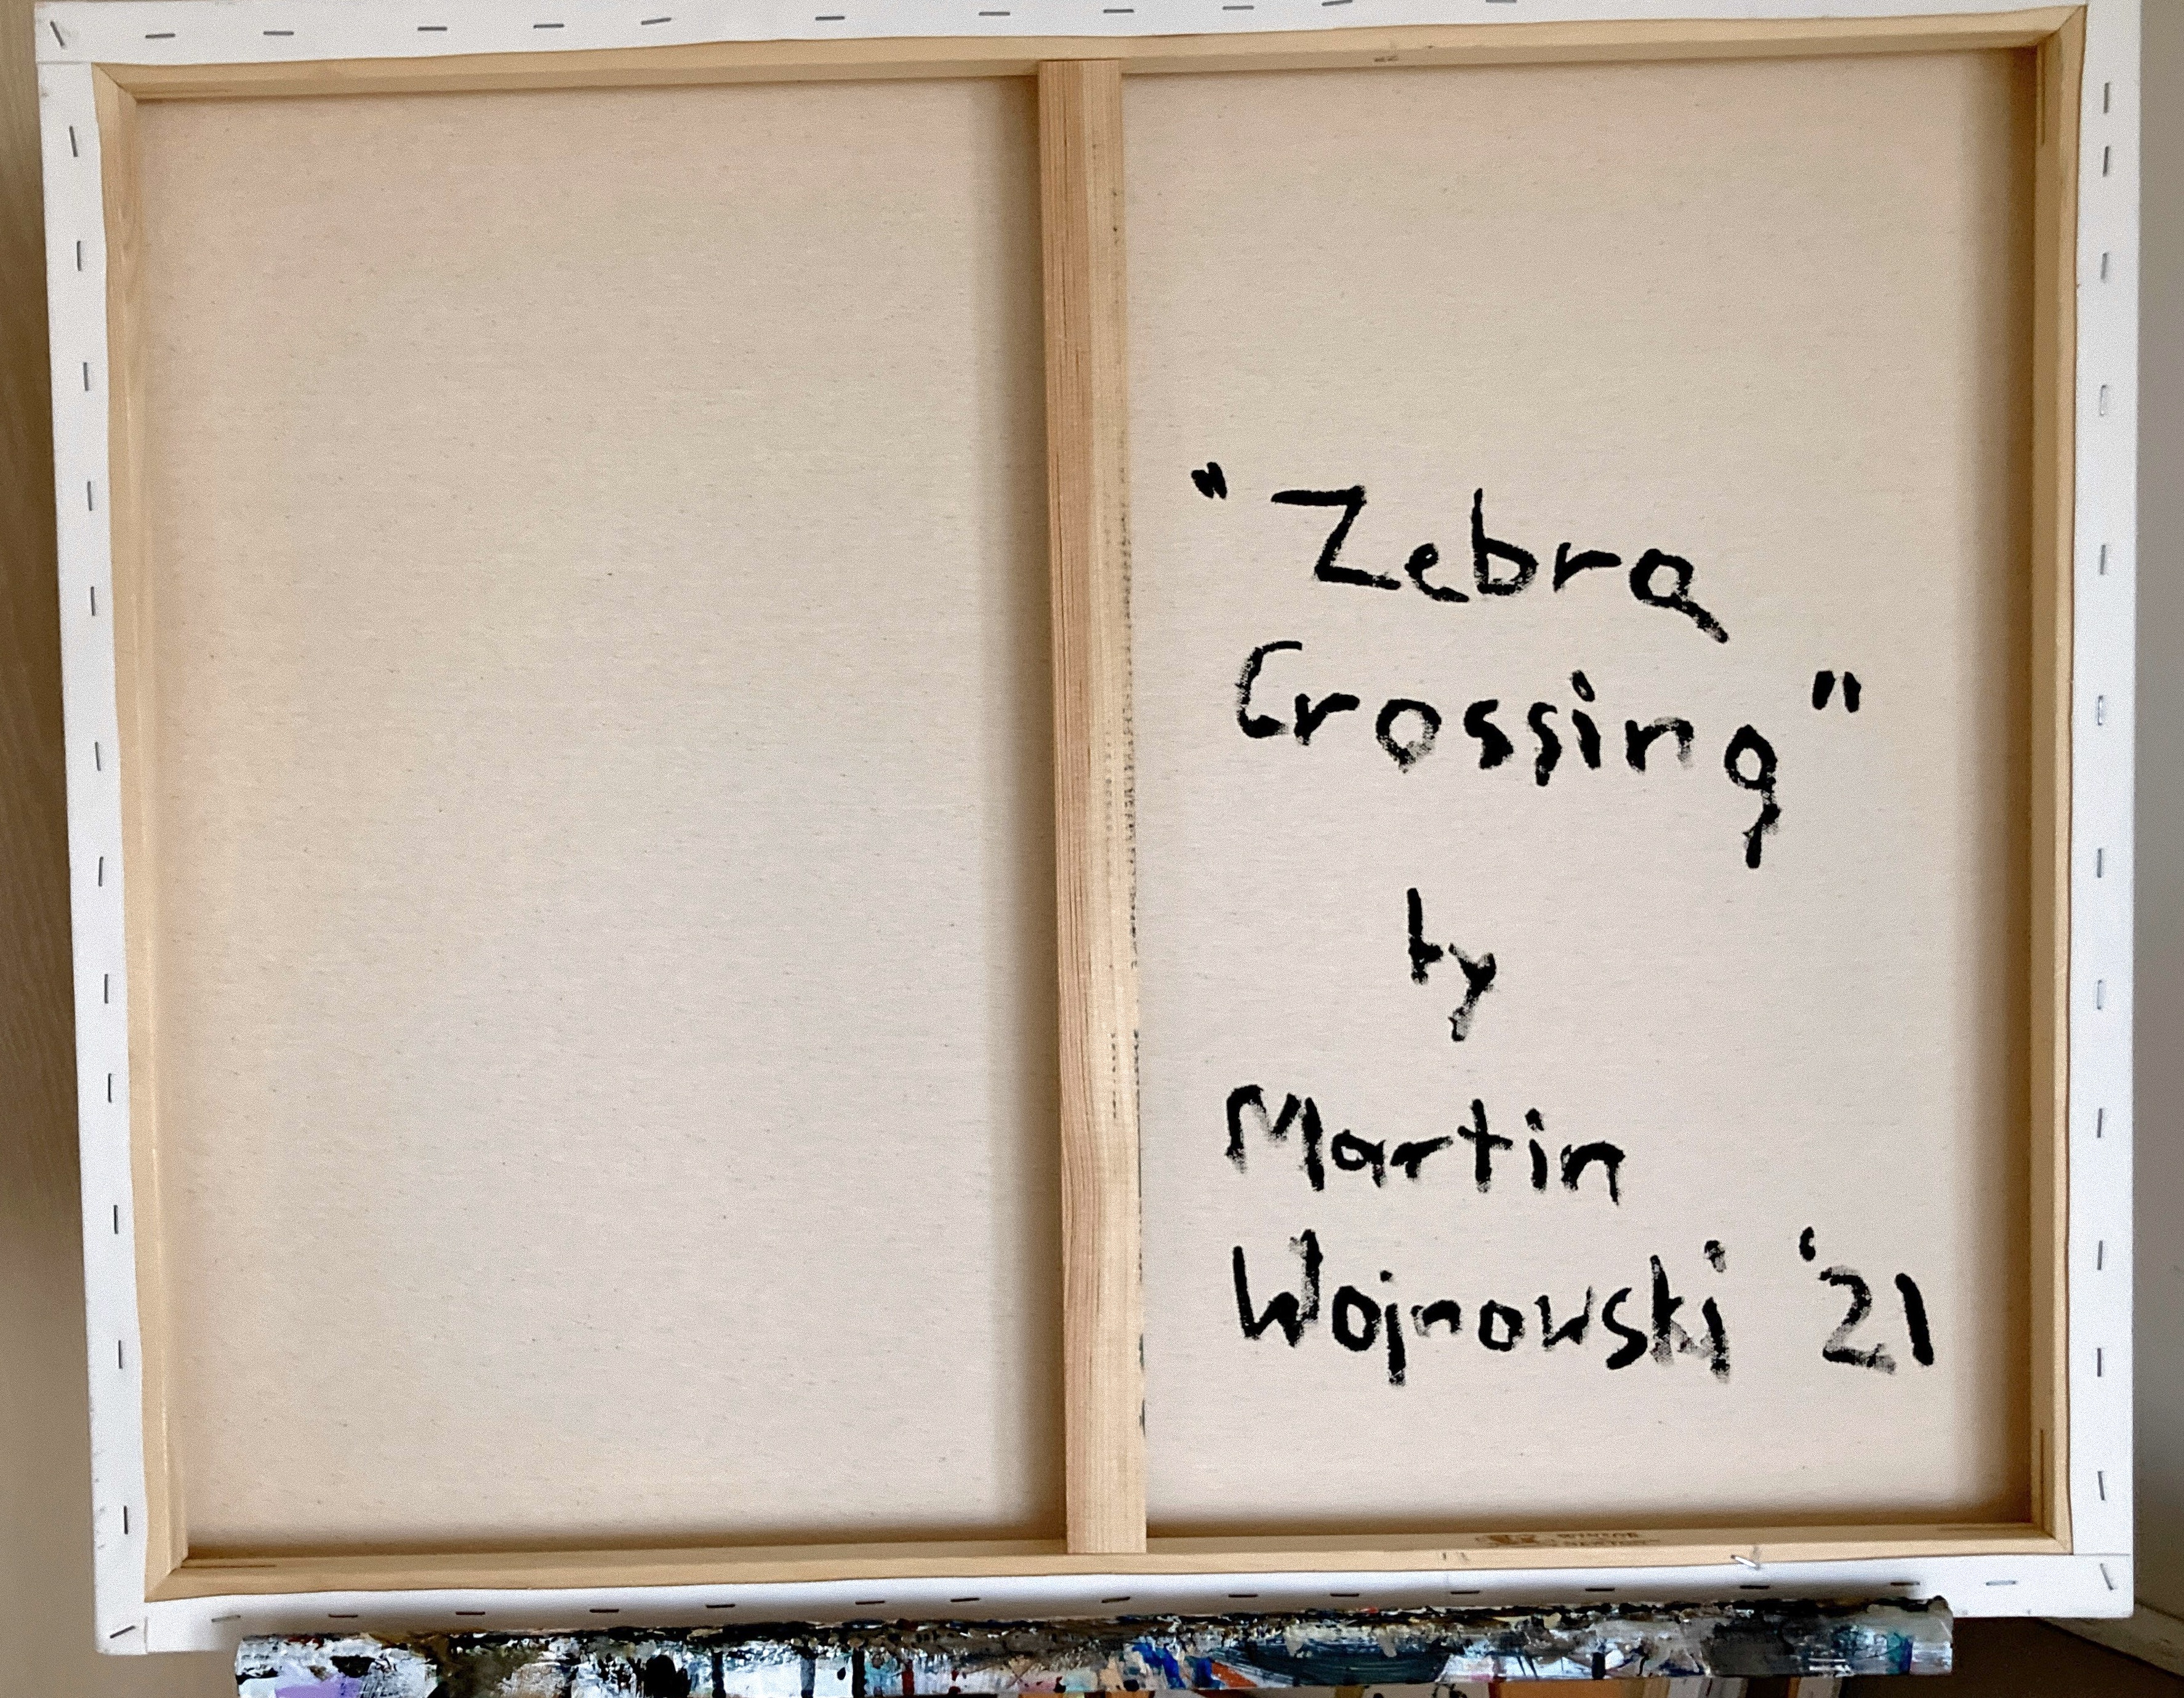 "Zebra
Crossing"
by
Martin
Wojnowski '21